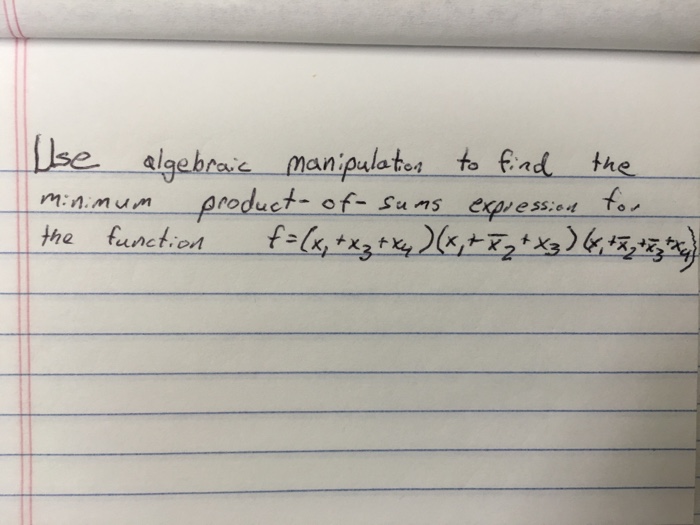 Use algebraic manipulation to find the
minimum product-of-sums expression for
the function f=(x₁+x₃+x₄)(x₁+x̅₂+x₃)(x₁+x̅₂+x̅₃+x₄)